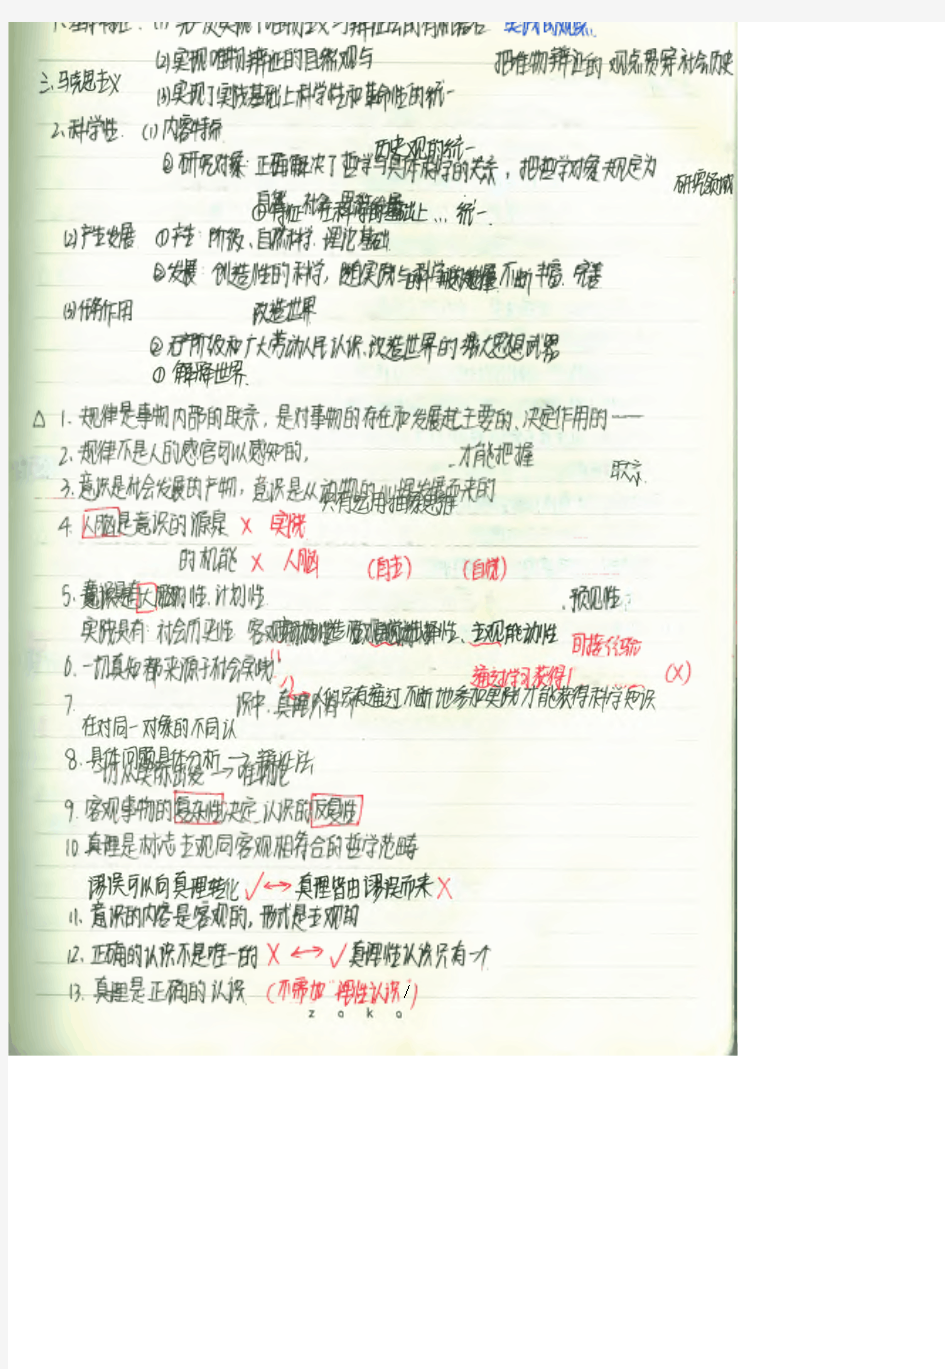 (2) 实现唯物辩证的自然观与
把唯物辩证的观点贯穿社会历史
三、马克思主义
(3) 实现了实践基础上科学性和革命性的统一
2、科学性 (1) 内容特点
历史观的统一
② 研究对象: 正确解决了哲学与具体科学的关系, 把哲学对象规定为
研究领域
自然、社会、思维
①特征 在科学的基础上…统一
(2) 产生发展 ①产生: 阶级、自然科学、理论基础
②发展: 创造性的科学, 随实践与科学的发展不断丰富、完善
(3) 任务作用 改造世界
② 无产阶级和广大劳动人民认识、改造世界的强大思想武器
① 解释世界
△ 1. 规律是事物内部的联系, 是对事物的存在和发展起主要的、决定作用的
2. 规律不是人的感官可以感知的, 才能把握
联系
3. 意识是社会发展的产物, 意识是从动物的心理发展而来的
只有运用抽象思维
4. 人脑是意识的源泉 × 实践
的机能 × 人脑 (自主) (自觉)
5. 性、计划性 、预见性
实践具有: 社会历史性 客观 选择性、主观能动性 间接经验
6. 一切真知都来源于社会实践 通过学习获得! (×)
7. 识中, 真理只有一个 人们只有通过不断地参加实践才能获得科学知识
在对同一对象的不同认
8. 具体问题具体分析 → 辩证法
一切从实际出发 → 唯物论
9. 客观事物的复杂性决定认识的反复性
10. 真理是标志主观同客观相符合的哲学范畴
谬误可以向真理转化 ✓ ↔ 真理皆由谬误而来 ×
11. 意识的内容是客观的, 形式是主观的
12. 正确的认识不是唯一的 × ↔ ✓ 真理性认识只有一个
13. 真理是正确的认识 (不需加“理性认识”)
zoko